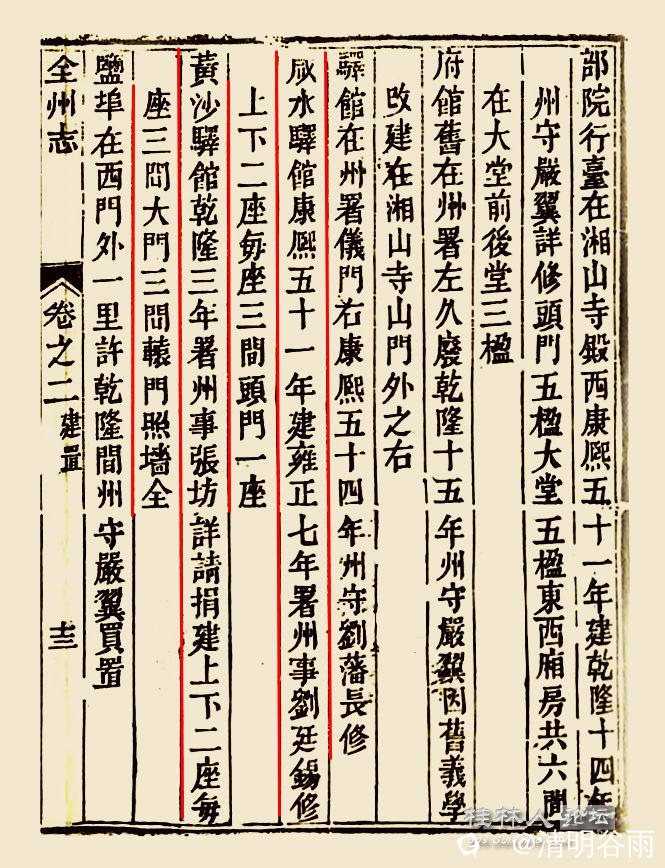 部院行臺在湘山寺殿西康熙五十一年建乾隆十四年
州守嚴翼詳修頭門五楹大堂五楹東西廂房共六間
在大堂前後堂三楹
府館舊在州署左久廢乾隆十五年州守嚴翼因舊義學
改建在湘山寺山門外之右
驛館在州署儀門右康熙五十四年州守劉藩長修
咸水驛館康熙五十一年建雍正七年署州事劉廷錫修
上下二座每座三間頭門一座
黄沙驛館乾隆三年署州事張坊詳請捐建上下二座每
座三間大門三間轅門照墻全
鹽埠在西門外一里許乾隆間州守嚴翼買置
全州志
卷之二 建置
十三
桂林人论坛
@清明谷雨